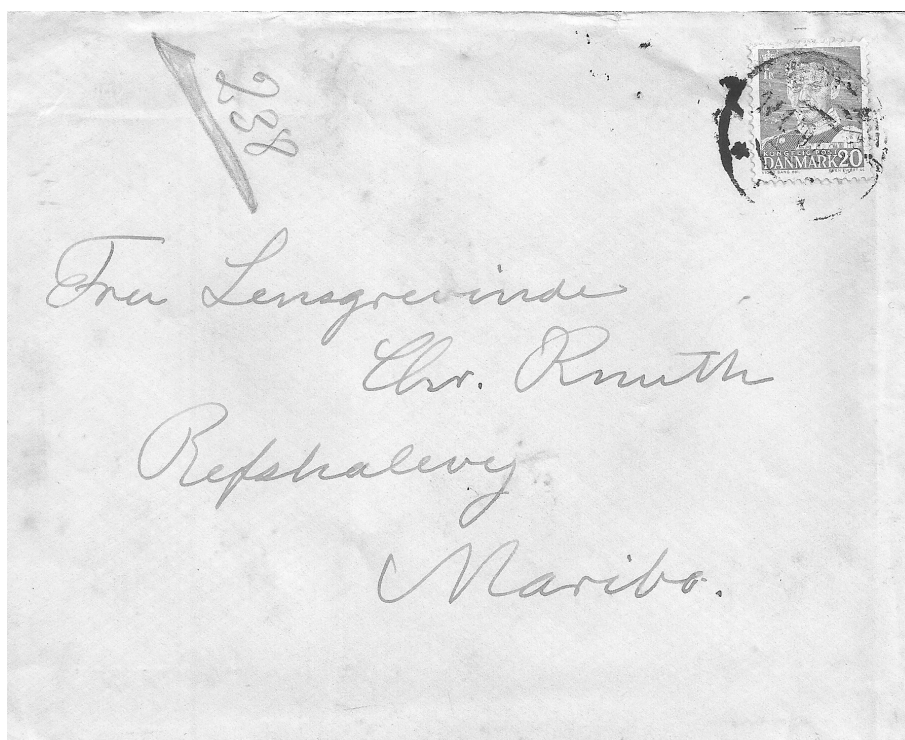 238
KONGELIG POST
DANMARK 20
Fru Lensgrevinde
Chr. Knuth
Refshalevej
Maribo.